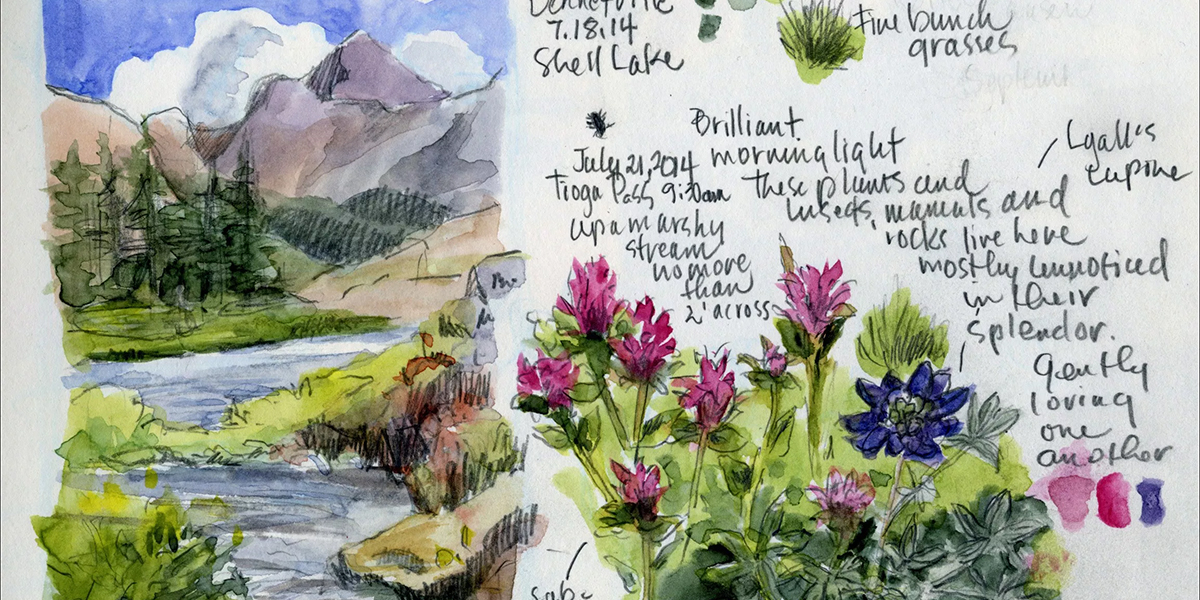 Bennettville
7.18.14
Shell Lake
Fine bunch
grasses
July 21, 2014
Tioga Pass 9:30am
up a marshy
stream
no more
than
2' across
Brilliant
morning light
These plants and
insects, mamals and
rocks live here
mostly unnoticed
in their
splendor.
gently
loving
one
another
Lyall's
Lupine